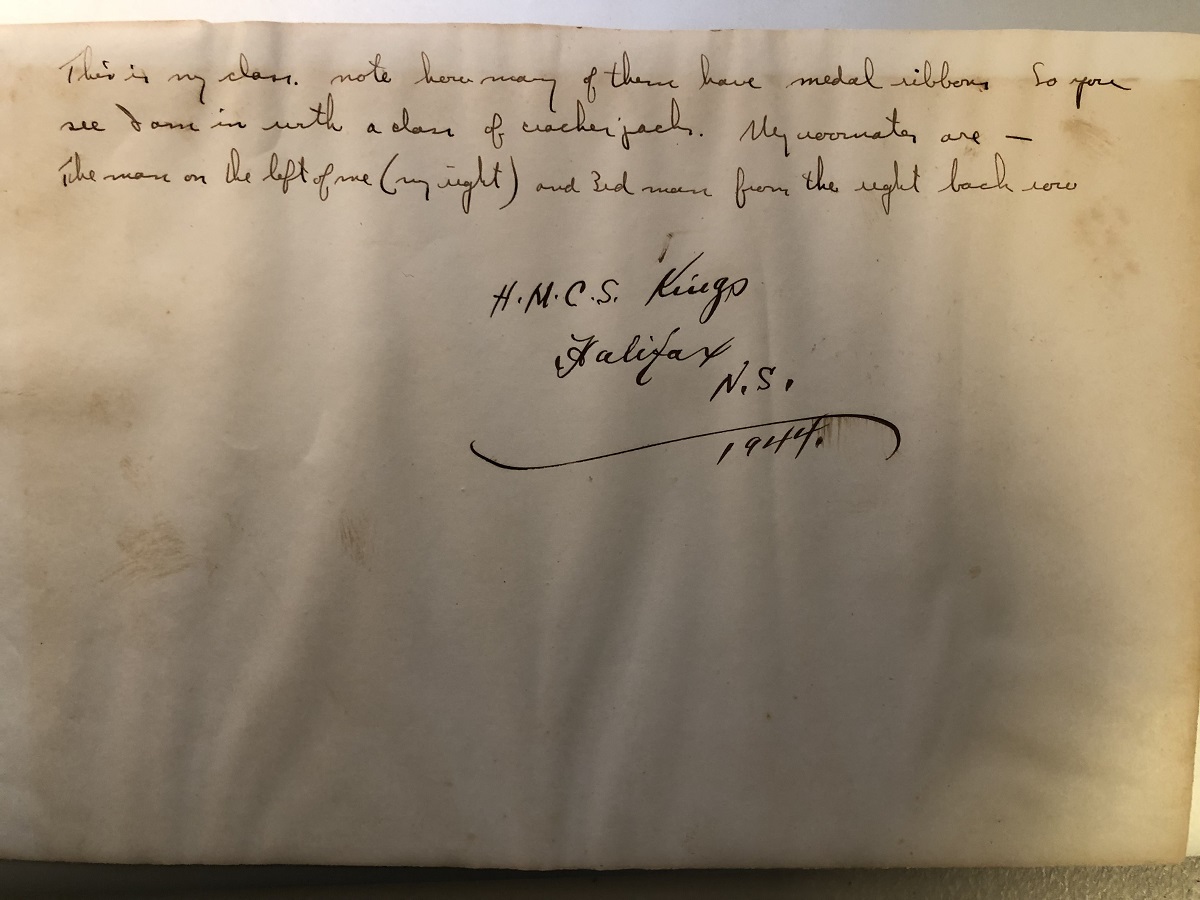 This is my class. note how many of them have medal ribbons So you
see I am in with a class of cracker jacks. My roomates are —
The man on the left of me (my right) and 3rd man from the right back row
H.M.C.S. Kings
Halifax
N.S.
1944.